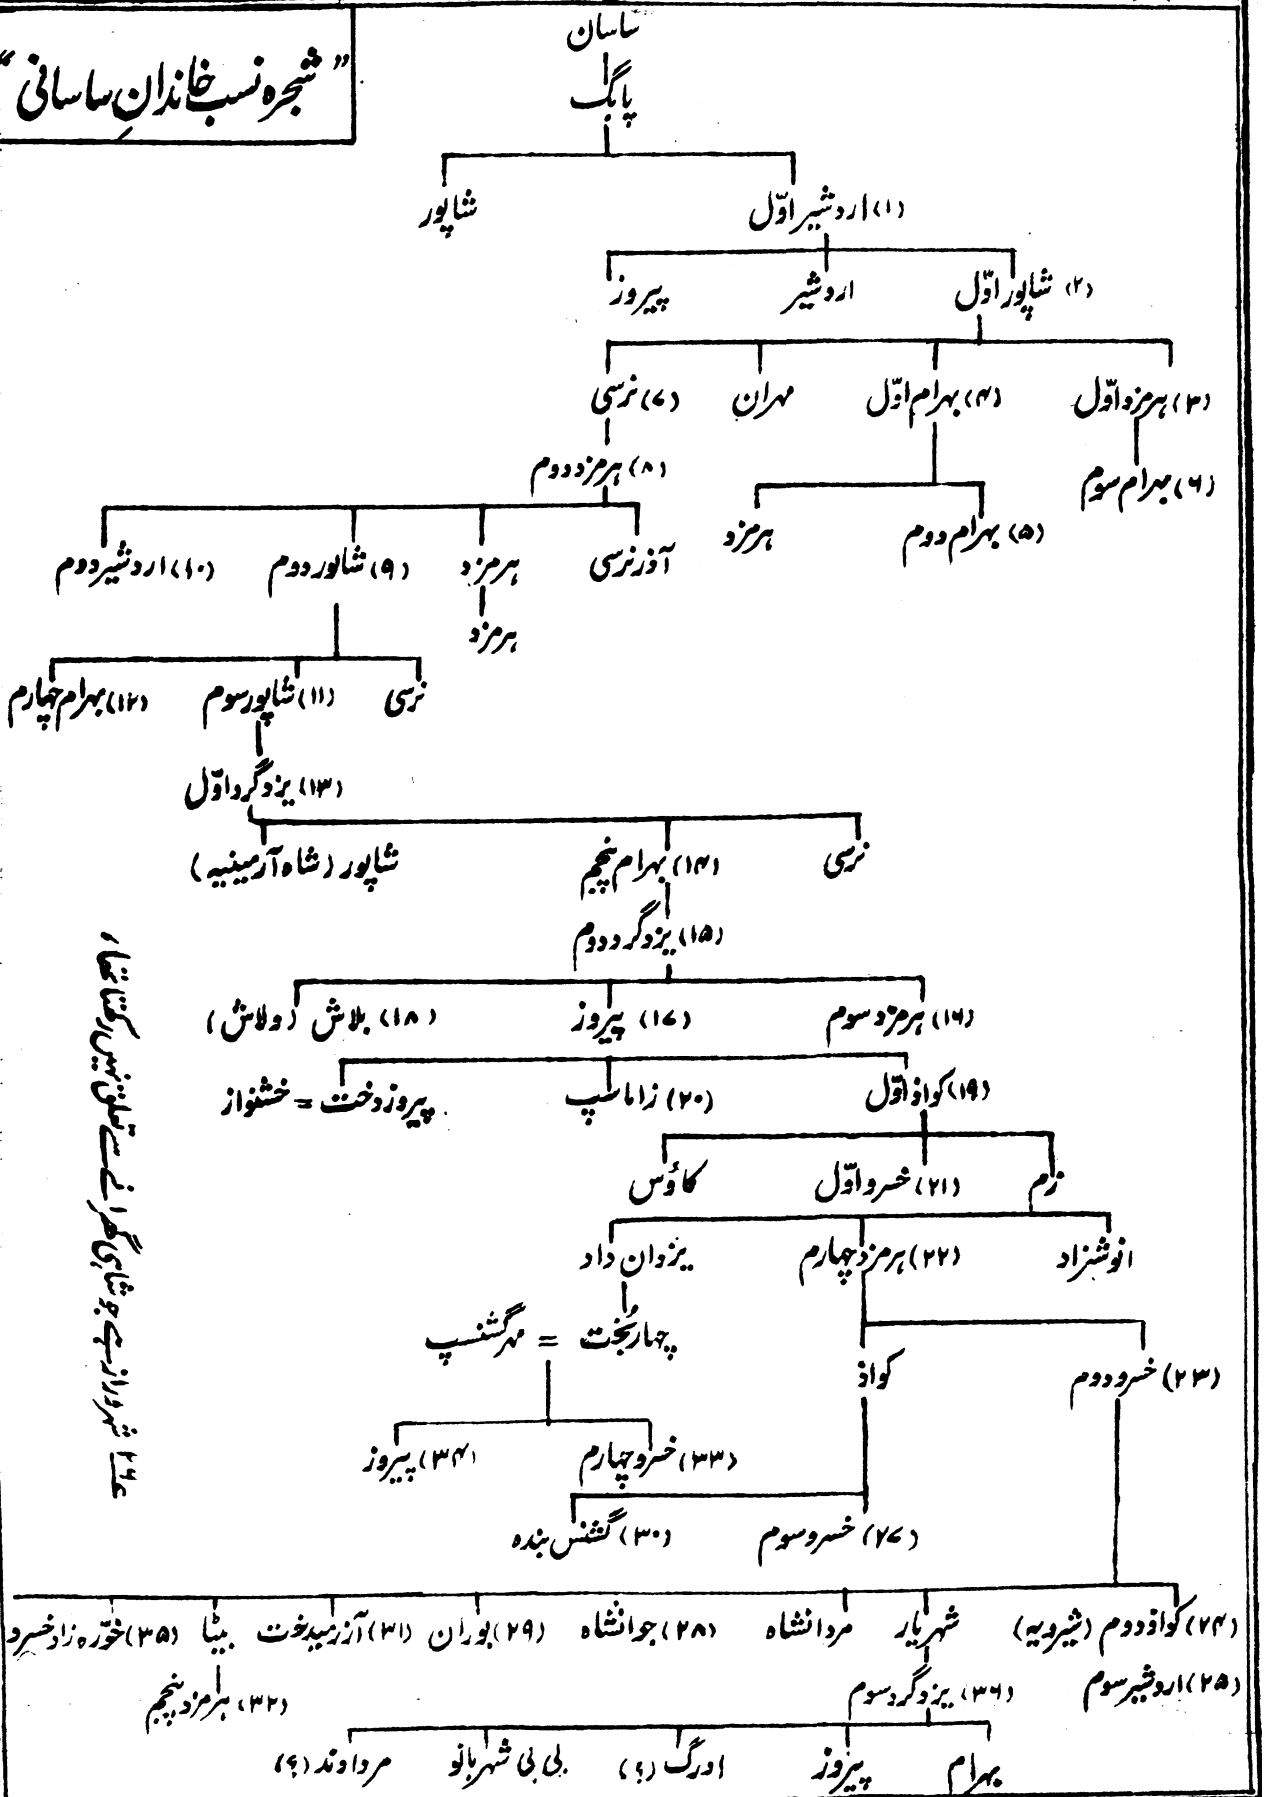 "شجرہ نسب خاندانِ ساسانی"
ساسان
پاپگ
(۱) اردشیر اوّل شاپور
(۲) شاپور اوّل اردشیر پیروز
(۳) ہرمزد اوّل (۴) بہرام اوّل مہران (۷) نرسی
(۸) ہرمزد دوم
(۶) بہرام سوم
(۵) بہرام دوم ہرمزد
آذر نرسی ہرمزد (۹) شاپور دوم (۱۰) اردشیر دوم
ہرمزد
نرسی (۱۱) شاپور سوم (۱۲) بہرام چہارم
(۱۳) یزدگرد اوّل
نرسی (۱۴) بہرام پنجم شاپور (شاہ آرمینیہ)
(۱۵) یزدگرد دوم
(۱۶) ہرمزد سوم (۱۷) پیروز (۱۸) بلاش (ولاش)
(۱۹) کواذ اوّل (۲۰) زاماسپ پیروز دخت = خشنواز
زم (۲۱) خسرو اوّل کاؤس
انوشنزاد (۲۲) ہرمزد چہارم یزدان داد
چہار بُخت = مہر گشنسپ
(۲۳) خسرو دوم کواذ
(۳۳) خسرو چہارم (۳۴) پیروز
(۲۷) خسرو سوم (۳۰) گشنس بندہ
(۲۴) کواذ دوم (شیرویہ) شہریار مردانشاہ (۲۸) جوانشاہ (۲۹) بوران (۳۱) آزرمیدخت بیٹا (۳۵) خوّرہ زاد خسرو
(۲۵) اردشیر سوم (۳۶) یزدگرد سوم (۳۲) ہرمزد پنجم
بہرام پیروز اورگ (؟) بی بی شہر بانو مرداوند (؟)
ع۲۶ شہر وراز ہے جو شاہی گھرانے سے تعلق نہیں رکھتا تھا۔